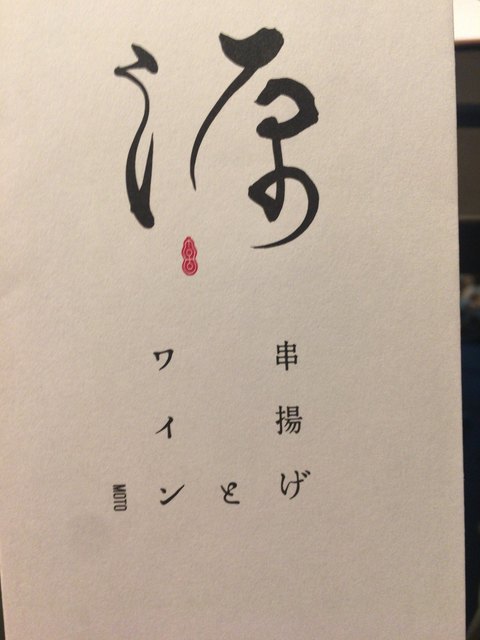 源
串揚げ
と
ワイン
MOTO